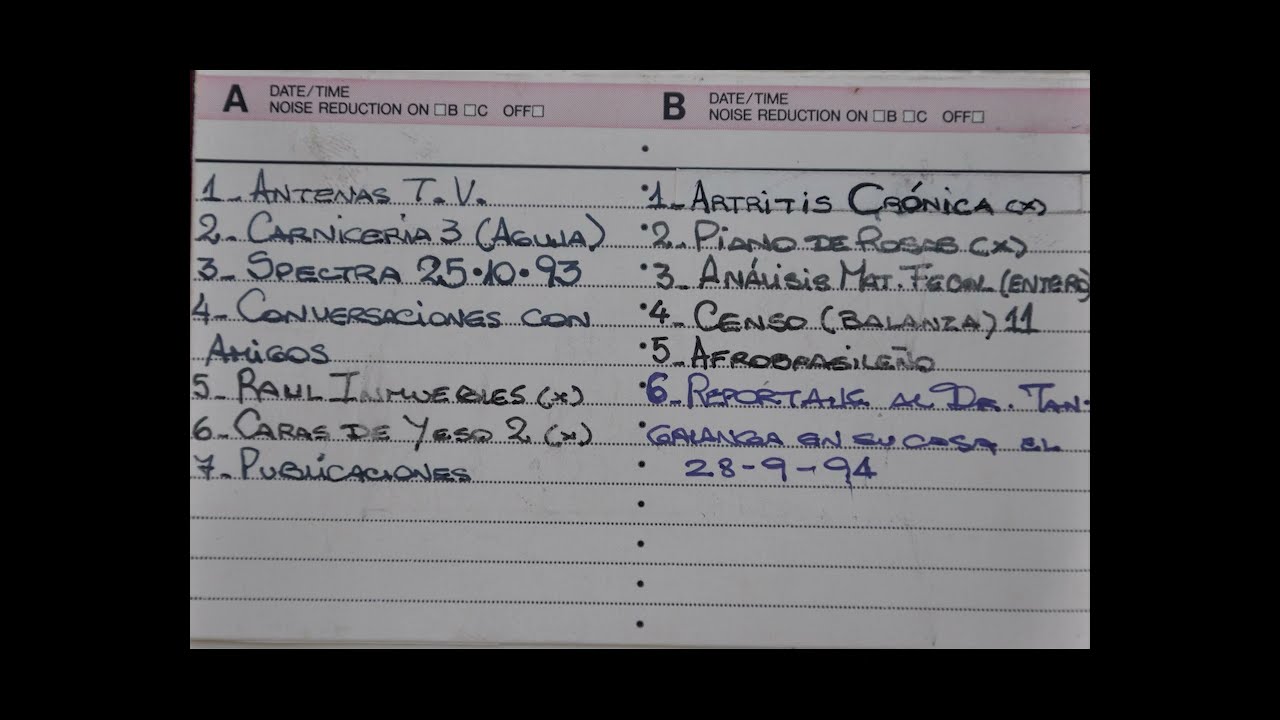 A DATE/TIME
NOISE REDUCTION ON □B □C OFF□
1_ ANTENAS T.V.
2_ CARNICERÍA 3 (AGUJA)
3_ SPECTRA 25·10·93
4_ CONVERSACIONES CON
AMIGOS
5_ RAUL INMUEBLES (x)
6_ CARAS DE YESO 2 (x)
7_ PUBLICACIONES
B DATE/TIME
NOISE REDUCTION ON □B □C OFF□
1_ ARTRITIS CRÓNICA (x)
2_ PIANO DE ROSAS (x)
3_ ANÁLISIS MAT. FECAL (ENTERO)
4_ CENSO (BALANZA) 11
5_ AFROBRASILEÑO
6_ REPORTAJE AL DR. TAN-
GALANGA EN SU CASA EL
28-9-94